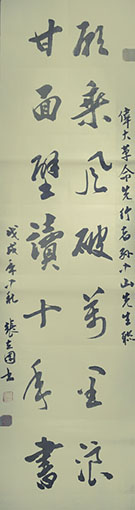 偉大革命先行者孙中山先生联
願乘风破萬里浪
甘面壁讀十年書
戊戌年少礼 張立国书